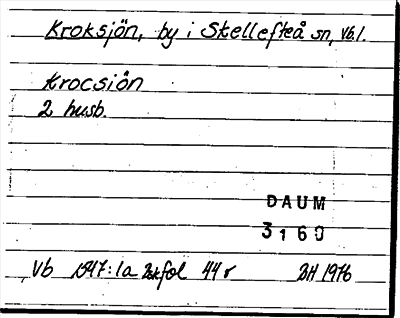 Kroksjön, by i Skellefteå sn, Vb.l.
Krocsiön
2 husb.
DAUM
3160
Vb 1547:1a fol 44 r BH 1976